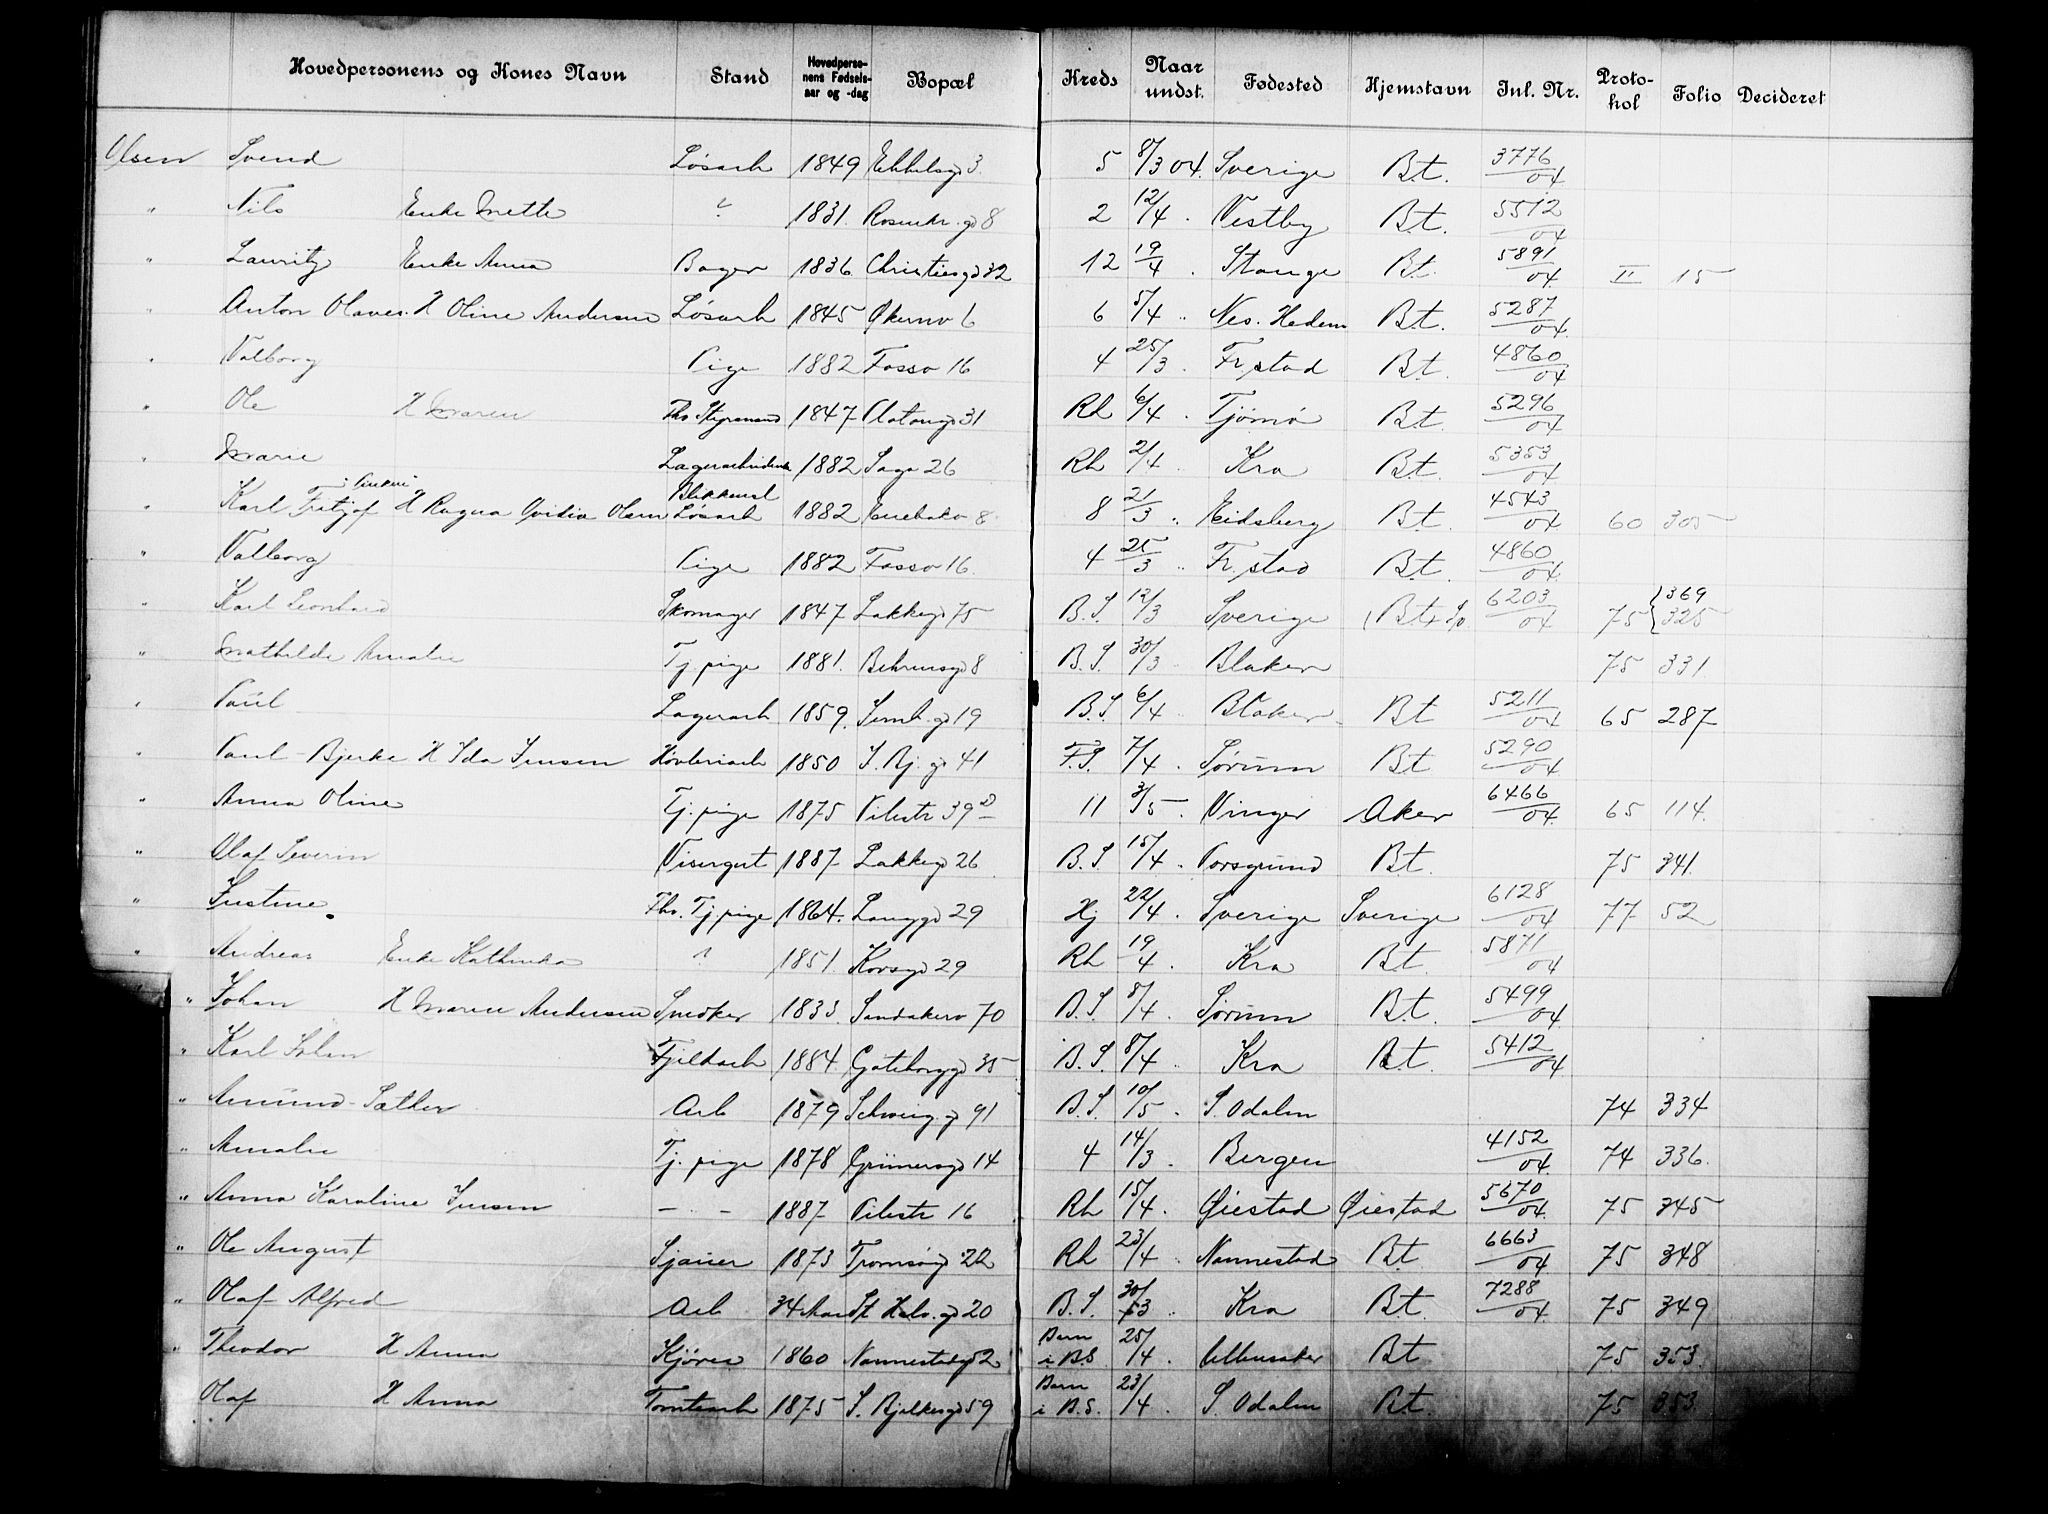 Hovedpersonens og Kones Navn Stand Hovedpersonens Fødselsaar og -dag Bopæl Kreds Naar undst. Fødested Hjemstavn Inl. Nr. Protokol Folio Decideret
Olsen Svend Løsarb 1849 Ekkelsgd 3. 5 8/3 04. Sverige Bt. 3776/04
" Nils Enke Mette 1831. Rosenkr. gd 8 2 12/4 . Vestby Bt. 5512/04
" Lauritz Enke Anna Bager 1836 Christiesgd 32 12 19/4 . Stange Bt. 5891/04 II 15
" Anton Olaves. H Oline Andersen Løsarb 1845 Økernv 6 6 5/4 " Nes. Hedem Bt. 5287/04
" Valborg Pige 1882 Fossv 16 4 25/3 . Fr.stad Bt. 4860/04
" Ole H Maren Fhv Styrmand 1847 Platougd 31 Rh 6/4 . Tjömö Bt. 5296/04
" Marie Lagerarbeiderske 1882 Saga 26 Rh 2/4 . Kra Bt. 5353/04
" Karl Fritjof H Ragna Ovidia Olsen Blikkensl Løsarb 1882 Enebakv 8 8 21/3 " Eidsberg Bt. 4543/04 60 305
" Valborg Pige 1882 Fossv 16. 4 25/3 " Fr.stad Bt. 4860/04
" Karl Leonhard Skomager 1847 Lakkegd 75 B.S. 12/3 Sverige Bt + 6203/04 75 {369 325
" Mathilde Amalie Tj. pige 1881. Behrensgd 8 B.S. 30/3 Blaker 75 331.
" Paul Lagerarb 1859. gd 19 B.S. 6/4 Blaker Bt 5211/04 65 287
" Paul Bjerke H Ida Jensen Høvleriarb 1850 S. Bj. gd 41 F.S. 7/4 . Sørum Bt 5290/04
" Anna Oline Tj. pige 1875 Pilestr 39 D 11 3/5 . Vinger Aker 6466/04 65 114.
" Olaf Severin Visergut 1887 Lakkegd 26 B.S 15/4 . Porsgrund Bt. 75 341.
" Justine. Fhv. Tj. pige 1864. Langgd 29 Hj 22/4 . Sverige Sverige 6128/04 77 52
" Andreas Enke Kathinka 1851. Korsgd 29 Rh 19/4 . Kra Bt. 5871/04
" Johan H Maren Andersen Snedker 1833 Sandakerv 70 B.S 8/4 . Sørum Bt. 5499/04
" Karl Johan Fjeldarb 1884 Gøteborggd 35 B.S. 8/4 " Kra Bt. 5412/04
" Amund Sæther Arb 1879 Schweig. gd 91 B.S. 10/5 . S. Odalen 74 334
" Amalie Tj. pige 1878 Grünersgd 14 4 14/3 . Bergen 4152/04 74 336.
" Anna Karoline Jensen — " — 1887 Pilestr 16 Rh 15/4 . Øiestad Øiestad 5670/04 75 345
" Ole August Sjauer 1873 Tromsøgd 22 Rh 23/4 " Nannestad Bt 6663/04 75 348
" Olaf Alfred Arb St Halv. gd 20 B.S. 30/3 " Kra Bt. 7288/04 75 349
" Theodor H Anna Kjører 1860 Nannestadgd 2 Barn i B.S. 25/4 . Ullensaker Bt 75 353.
Olaf H Anna Tomtearb 1875 S. Bjelkesgd 59 Barn i B.S. 23/4 . S. Odalen Bt. 75 353